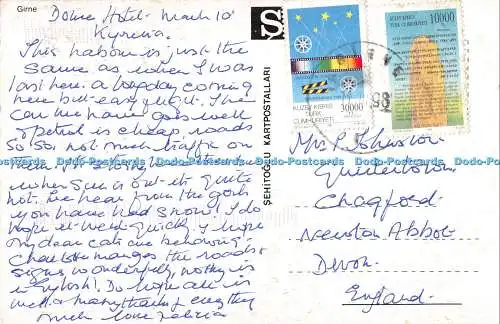 Girne
Dome Hotel - March 10
Kyrenia.
This harbour is just the
same as when I was
last here. a long day coming
here but easy flight. The
car we have goes well
petrol is cheap, roads
so so, not much traffic on
them.
when sun is out its quite
hot. We hear from the
you have had snow. I do
hope it went quickly. I hope
my dear cats are behaving.
Charlotte manges the roads &
signs wonderfully, nothing is
in English! Do hope all is
well & many thanks for everything
much love
ŞEHİTOĞLU KARTPOSTALLARI
Ş
30000
KUZEY KIBRIS
TÜRK
CUMHURİYETİ
KUZEY KIBRIS
TÜRK CUMHURİYETİ
10000
98
Mrs P. Johnston
Chagford
Newton Abbot
Devon.
England.
Dodo-Postcards Dodo-Postcards Dodo-Postcards Dodo-Postcards Dodo-Postcards